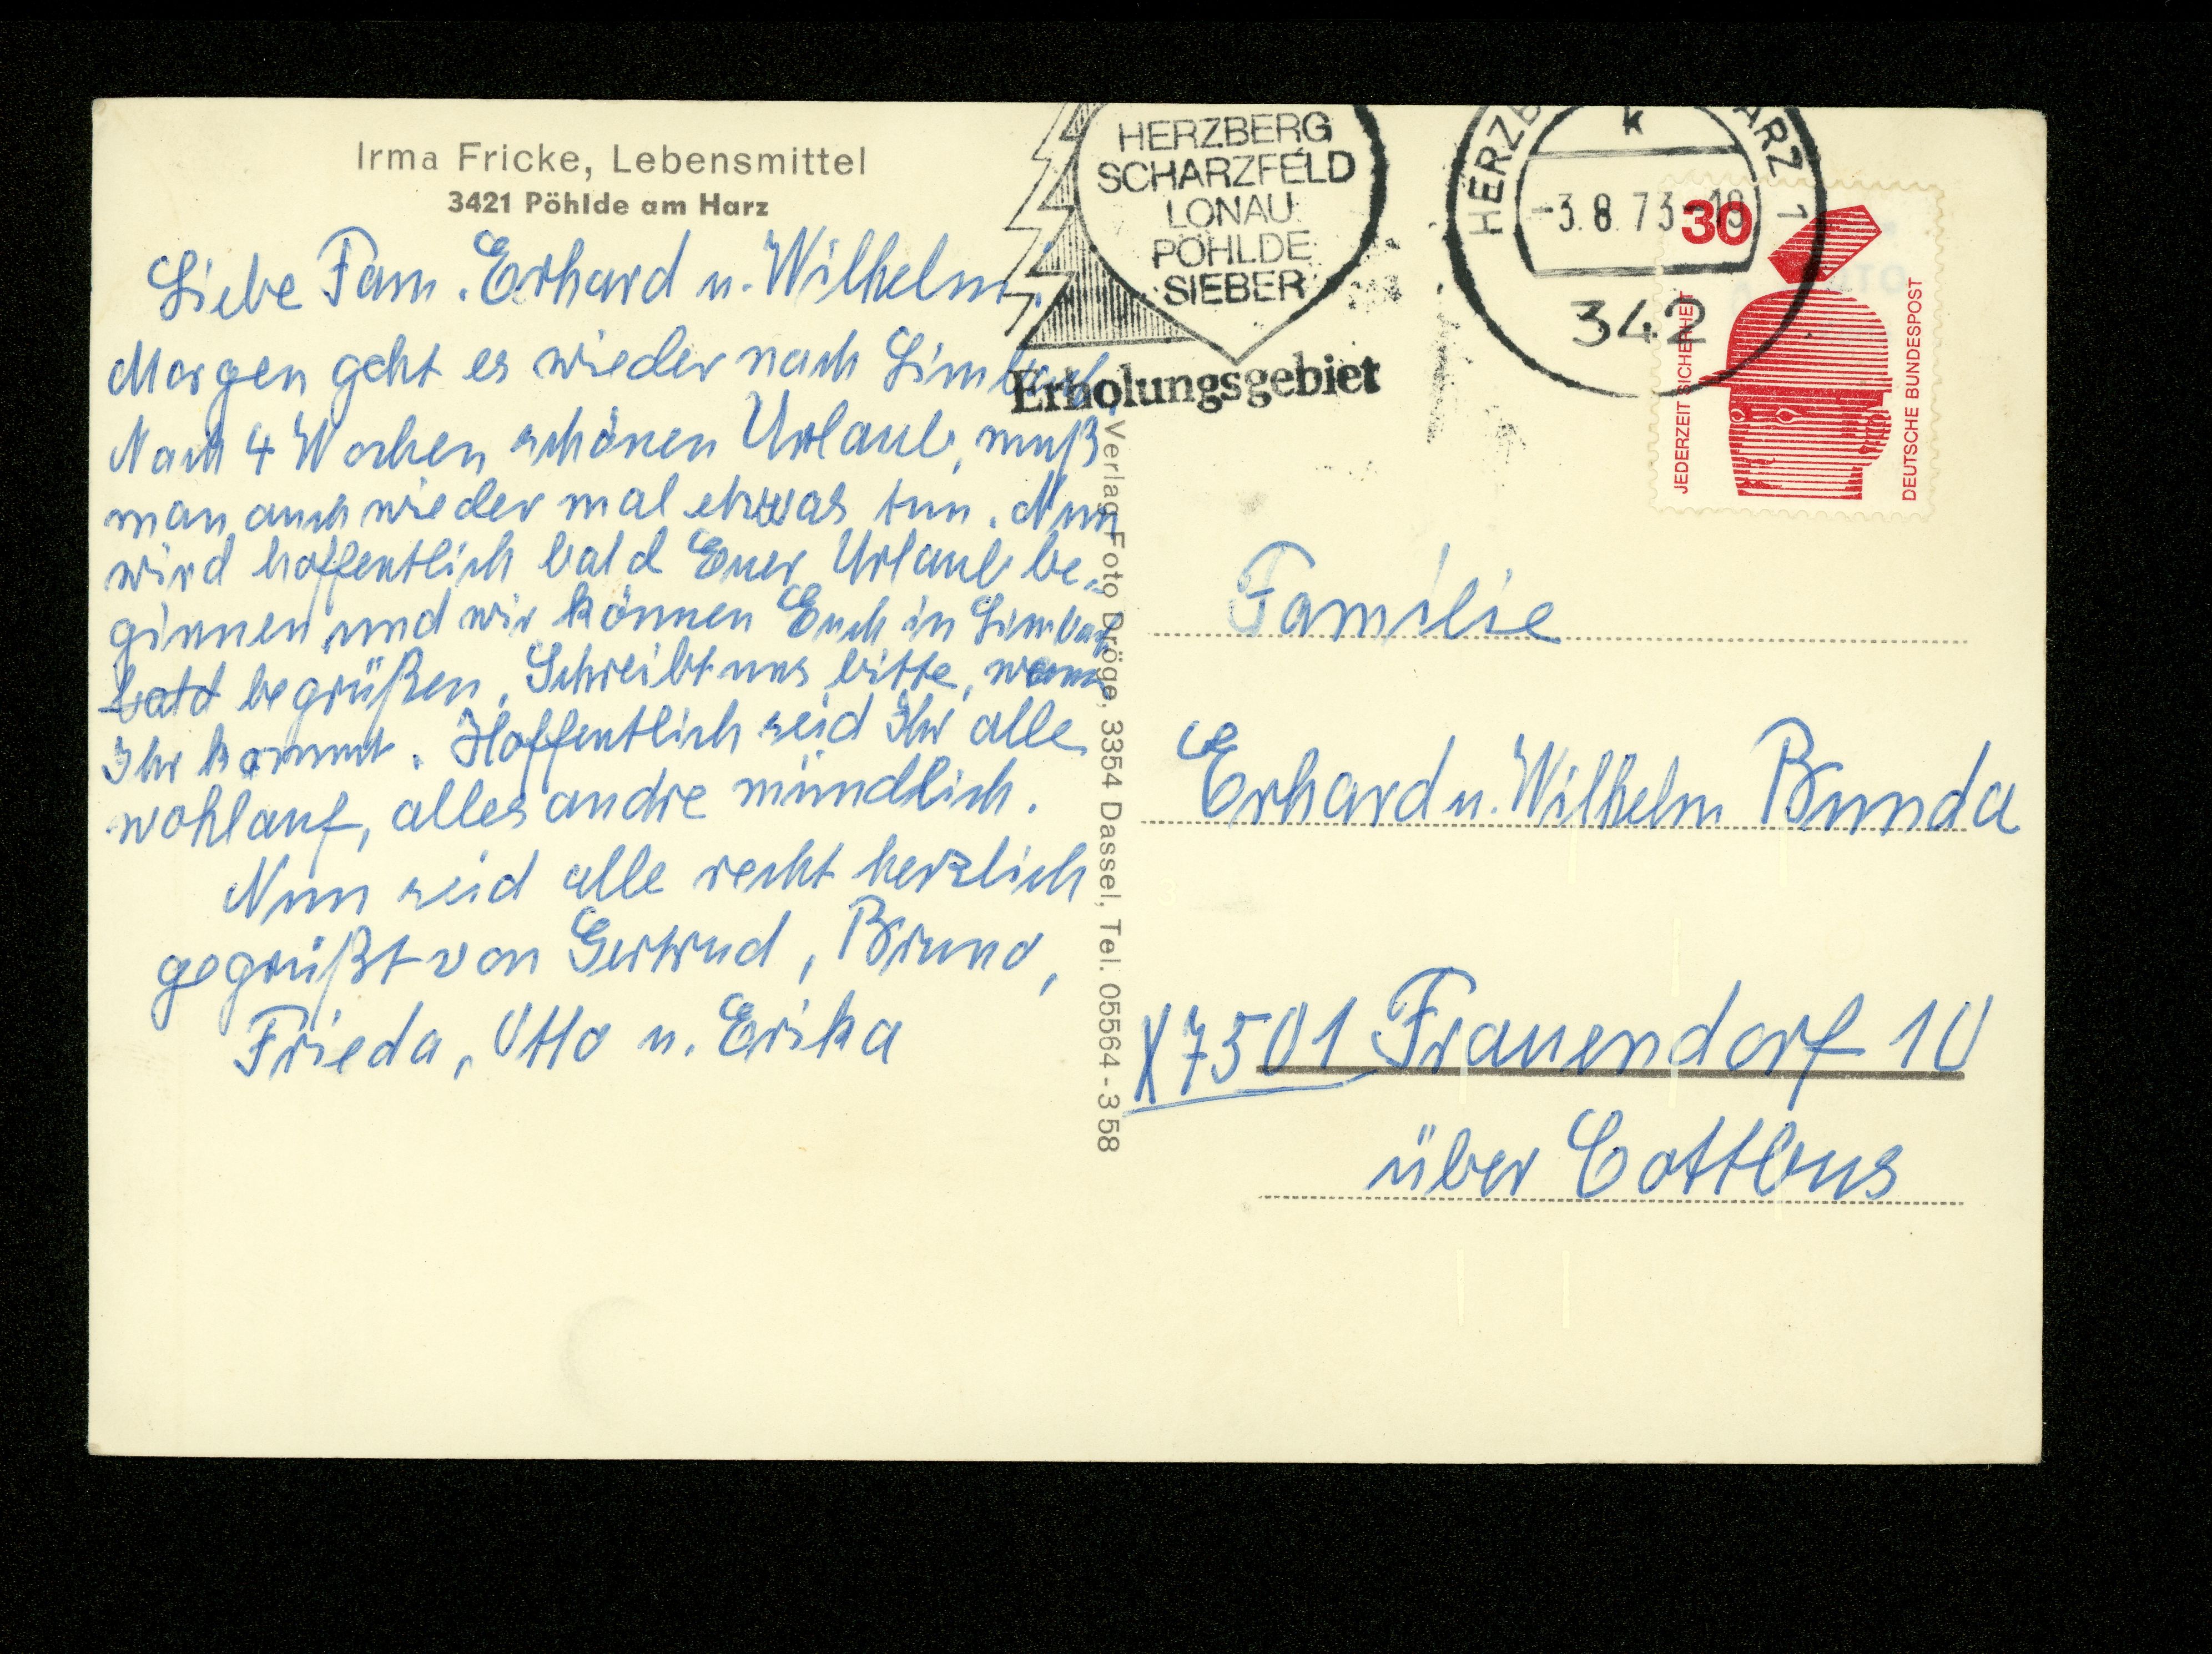 Irma Fricke, Lebensmittel
3421 Pöhlde am Harz
Liebe Fam. Erhard u. Wilhelm!
Morgen geht es wieder nach Limbach.
Nach 4 Wochen schönen Urlaub, muß
man auch wieder mal etwas tun. Nun
wird hoffentlich bald Euer Urlaub be-
ginnen und wir können Euch in Limbach
bald begrüßen. Schreibt uns bitte, wann
Ihr kommt. Hoffentlich seid Ihr alle
wohlauf, alles andre mündlich.
Nun seid alle recht herzlich
gegrüßt von Gertrud, Bruno,
Frieda, Otto u. Erika
Verlag Foto Dröge, 3354 Dassel, Tel. 05564-358
HERZBERG
SCHARZFELD
LONAU
PÖHLDE
SIEBER
Erholungsgebiet
HERZB ARZ 1
k
-3.8.73-18
342
30
JEDERZEIT SICHERHEIT
DEUTSCHE BUNDESPOST
Familie
Erhard u. Wilhelm Bunda
X7501 Frauendorf 10
über Cottbus